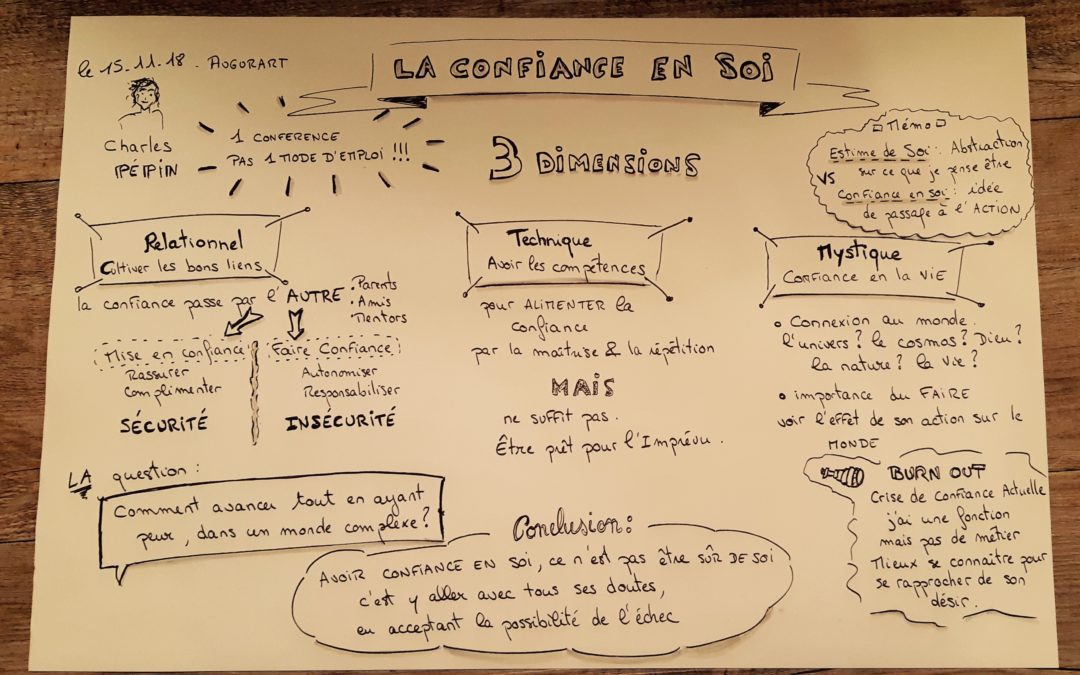 le 15.11.18. AUGURART
LA CONFIANCE EN SOI
Charles
PÉPIN
1 CONFERENCE
PAS 1 MODE D'EMPLOI !!!
3 DIMENSIONS
Mémo
Estime de Soi : Abstraction
sur ce que je pense être
VS
Confiance en soi : idée
de passage à l'ACTION
Relationnel
Cultiver les bons liens
la confiance passe par l'AUTRE
. Parents
. Amis
. Mentors
Mise en confiance
Rassurer
Complimenter
SÉCURITÉ
Faire Confiance
Autonomiser
Responsabiliser
INSÉCURITÉ
Technique
Avoir les compétences
pour ALIMENTER la
confiance
par la maîtrise & la répétition
MAIS
ne suffit pas.
Être prêt pour l'Imprévu.
Mystique
CONFIANCE EN LA VIE
• Connexion au monde.
l'univers ? le cosmos ? Dieu ?
la nature ? la vie ?
• importance du FAIRE
voir l'effet de son action sur le
MONDE
LA question :
Comment avancer tout en ayant
peur, dans un monde complexe ?
BURN OUT
Crise de confiance Actuelle
j'ai une fonction
mais pas de métier
Mieux se connaître pour
se rapprocher de son
désir.
Conclusion :
AVOIR CONFIANCE EN SOI, ce n'est pas être SÛR DE SOI
c'est y aller avec tous ses doutes,
en acceptant la possibilité de l'échec